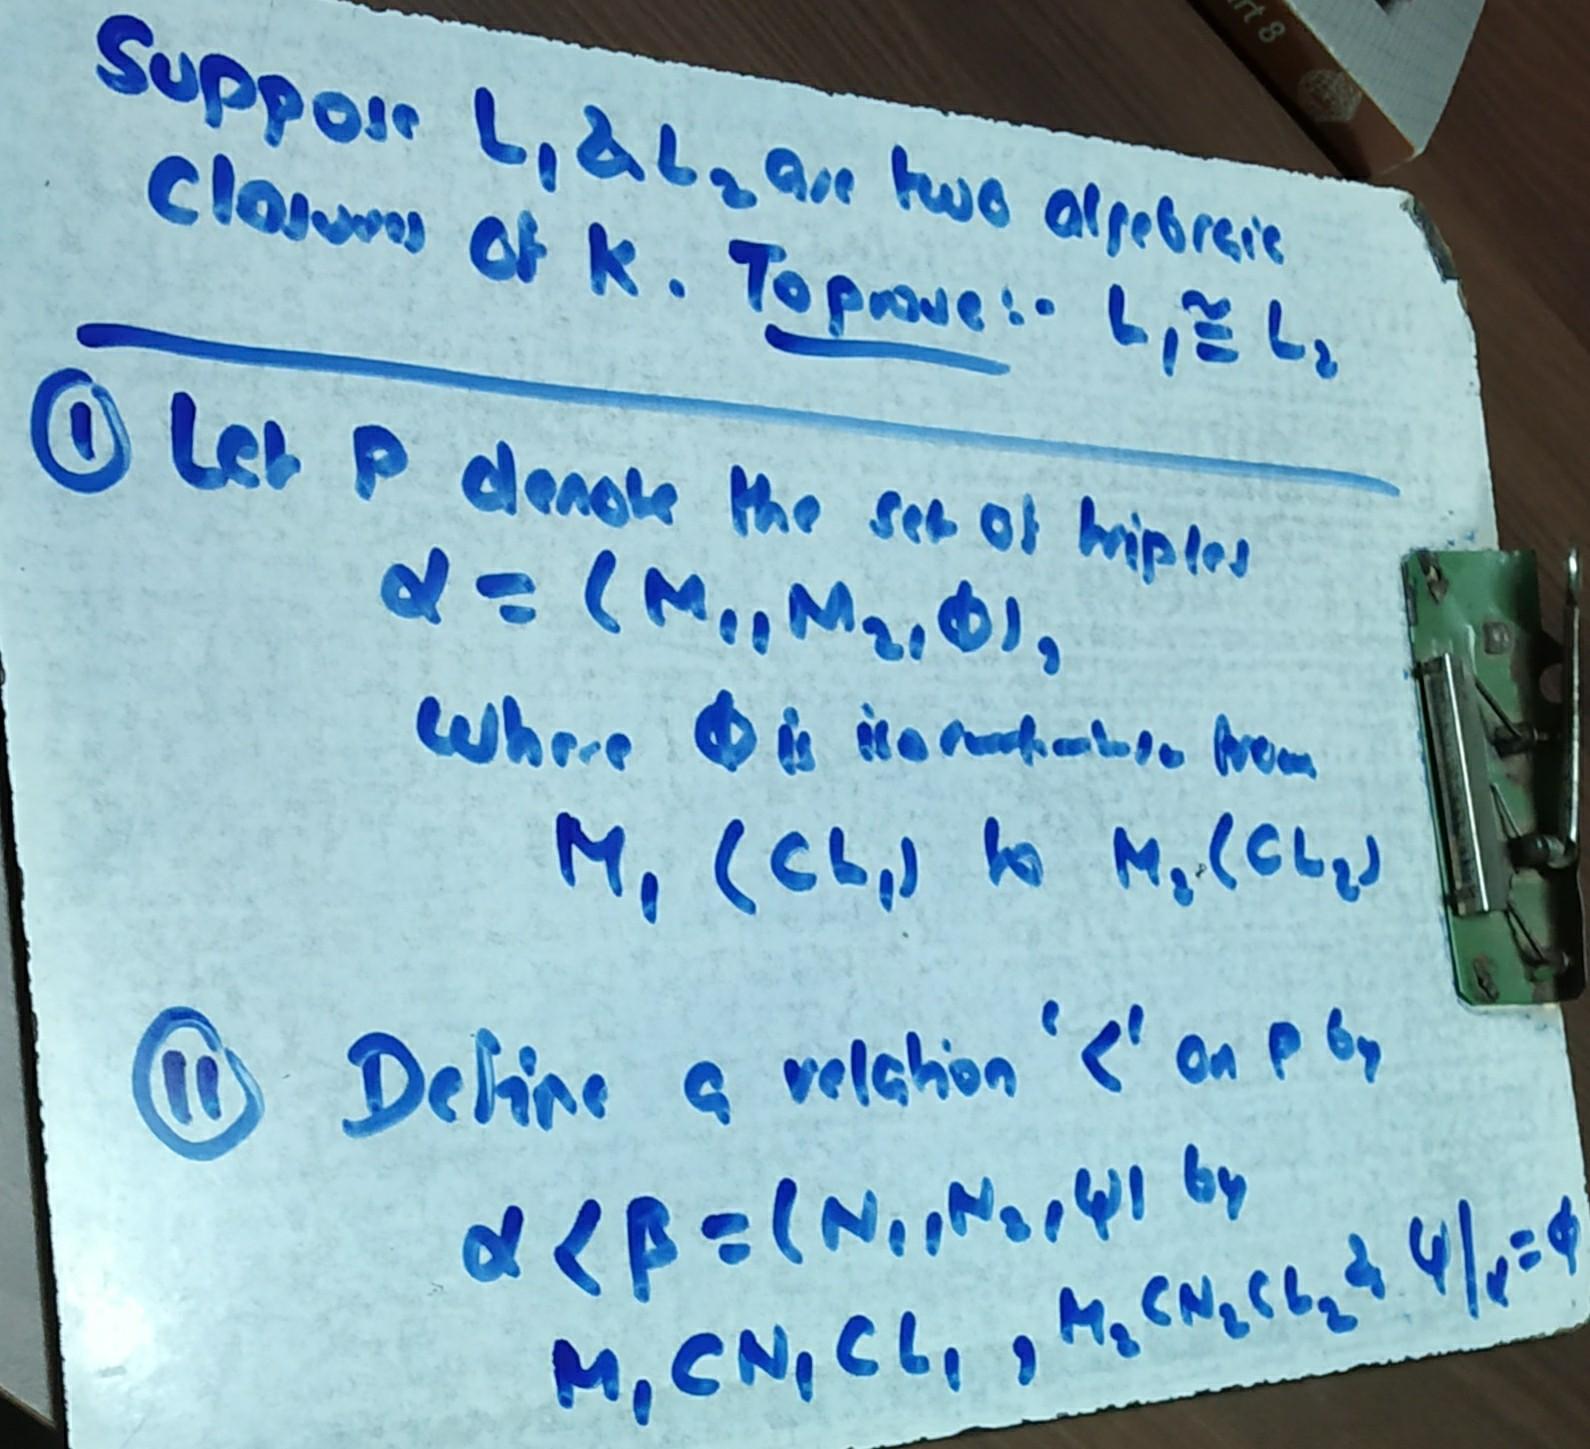 Suppose L₁ & L₂ are two algebraic
Closures of K. To prove:- L₁ ≅ L₂
① Let P denote the set of triples
α = (M₁, M₂, Φ),
where Φ is isomorphism from
M₁ (⊂L₁) to M₂ (⊂L₂)
⑪ Define a relation '<' on P by
α < β = (N₁, N₂, ψ) by
M₁ ⊂ N₁ ⊂ L₁, M₂ ⊂ N₂ ⊂ L₂ & ψ| = Φ
rt 8